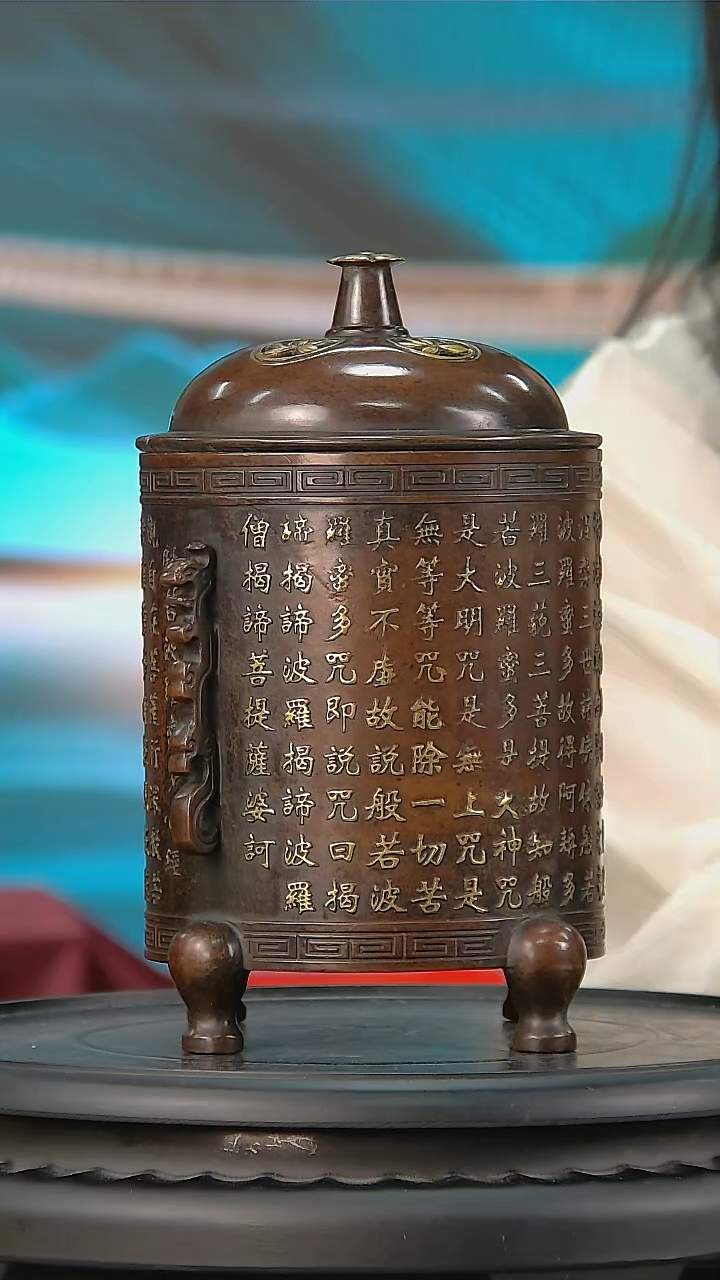 涅槃三世諸佛依般若
波羅蜜多故得阿耨多
羅三藐三菩提故知般
若波羅蜜多是大神咒
是大明咒是無上咒是
無等等咒能除一切苦
真實不虛故說般若波
羅蜜多咒即說咒曰揭
諦揭諦波羅揭諦波羅
僧揭諦菩提薩婆訶